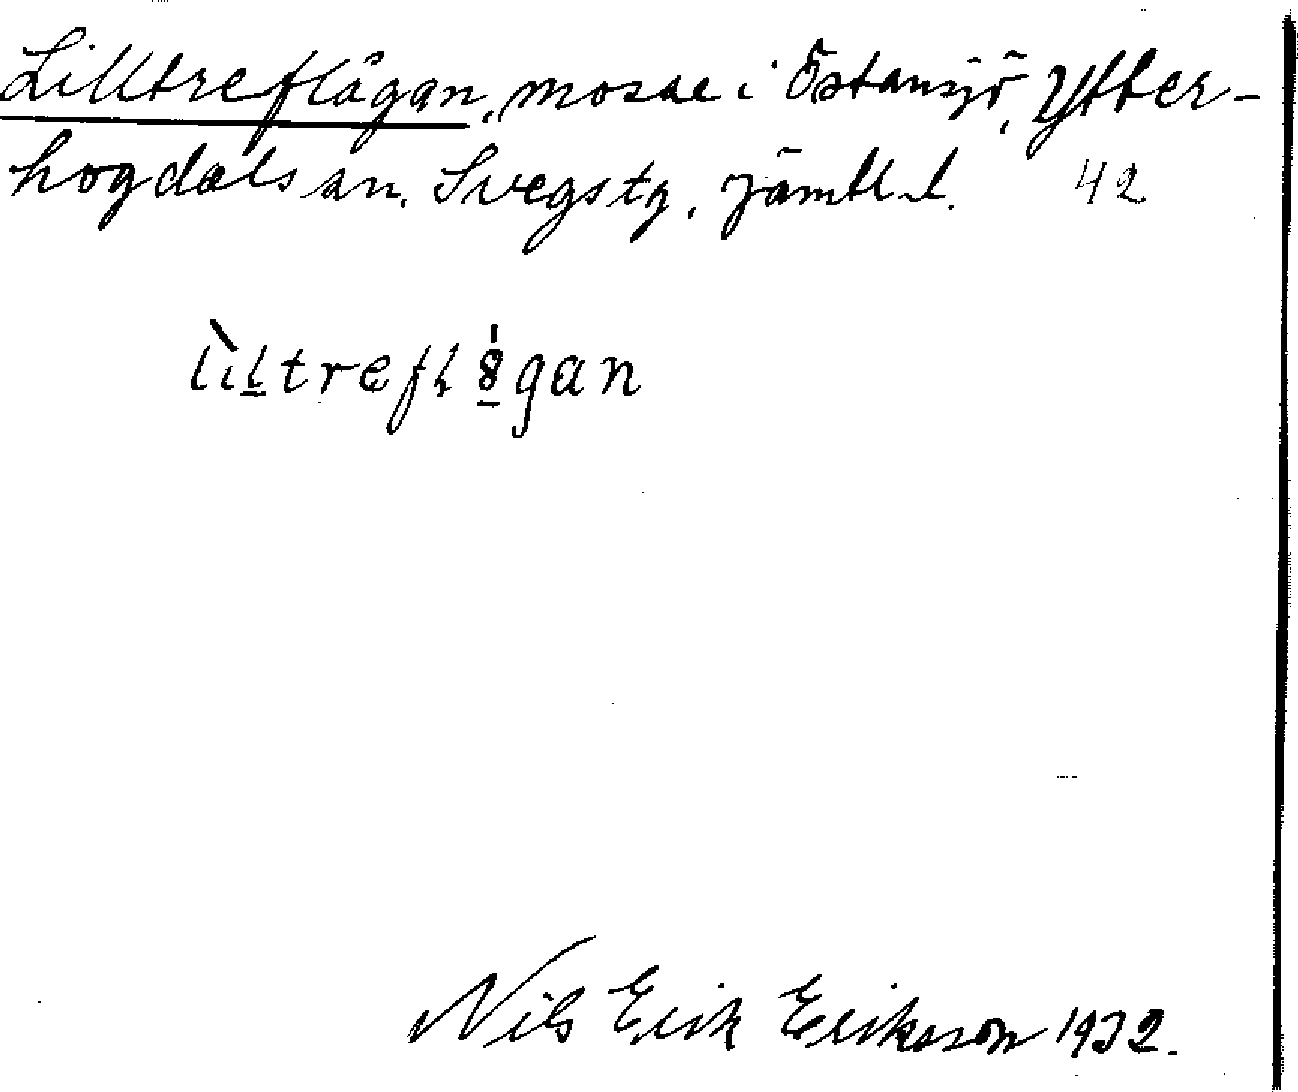 Lilltreflågan, mosse i Östansjö, Ytter-
hogdals sn, Svegs tg, Jämtl. l. 42
lìltrefl8gan
Nils Erik Eriksson 1932.